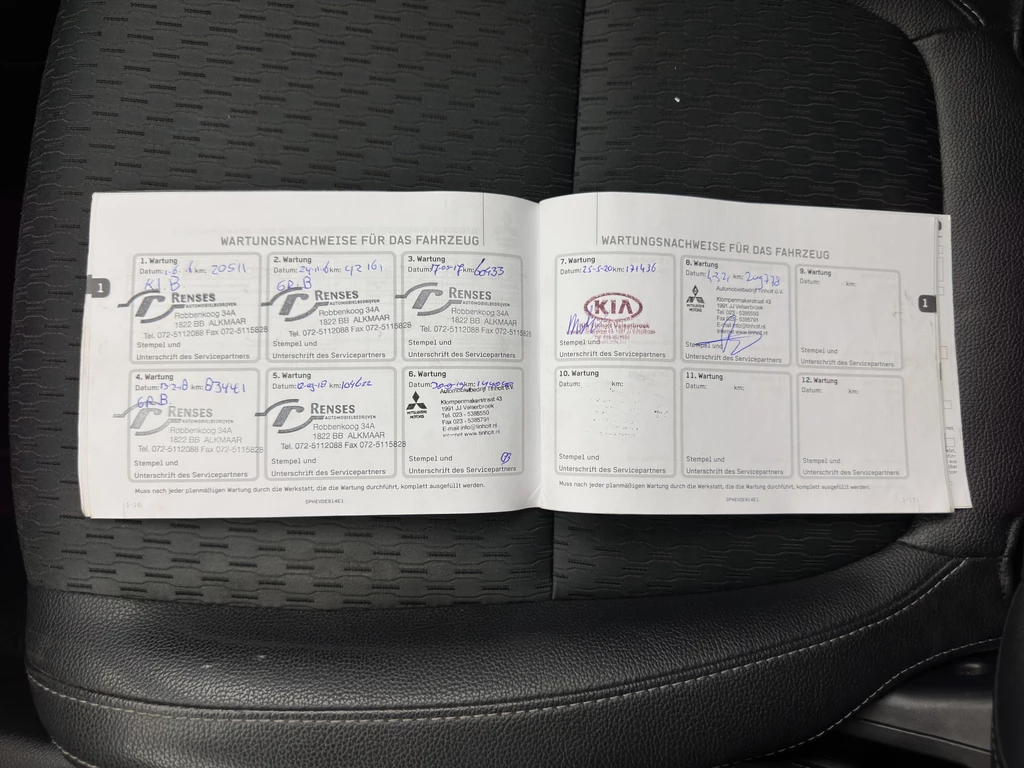 WARTUNGSNACHWEISE FÜR DAS FAHRZEUG
1. Wartung
Datum: km: 20511
KL.B.
RENSES
AUTOMOBIELBEDRIJVEN
Robbenkoog 34A
1822 BB ALKMAAR
Tel. 072-5112088 Fax 072-5115828
Stempel und
Unterschrift des Servicepartners
2. Wartung
Datum: km: 42161
GR.B
RENSES
AUTOMOBIELBEDRIJVEN
Robbenkoog 34A
1822 BB ALKMAAR
Tel. 072-5112088 Fax 072-5115828
Stempel und
Unterschrift des Servicepartners
3. Wartung
Datum: km: 60933
RENSES
AUTOMOBIELBEDRIJVEN
Robbenkoog 34A
1822 BB ALKMAAR
Tel. 072-5112088 Fax 072-5115828
Stempel und
Unterschrift des Servicepartners
1
4. Wartung
Datum: km: 83441
GR.B.
RENSES
AUTOMOBIELBEDRIJVEN
Robbenkoog 34A
1822 BB ALKMAAR
Tel. 072-5112088 Fax 072-5115828
Stempel und
Unterschrift des Servicepartners
5. Wartung
Datum: 12-03-18 km: 104622
RENSES
AUTOMOBIELBEDRIJVEN
Robbenkoog 34A
1822 BB ALKMAAR
Tel. 072-5112088 Fax 072-5115828
Stempel und
Unterschrift des Servicepartners
6. Wartung
Datum: km:
Automobielbedrijf Tinholt B.V.
MITSUBISHI
MOTORS
Klompenmakerstraat 43
1991 JJ Velserbroek
Tel. 023 - 5385550
Fax 023 - 5385791
E-mail info@tinholt.nl
Internet www.tinholt.nl
Unterschrift des Servicepartners
Muss nach jeder planmäßigen Wartung durch die Werkstatt, die die Wartung durchführt, komplett ausgefüllt werden.
1-16
WARTUNGSNACHWEISE FÜR DAS FAHRZEUG
7. Wartung
Datum: 25-5-20 km: 171436
KIA
Tinholt Velserbroek
Stempel und
Unterschrift des Servicepartners
8. Wartung
Datum: km:
Automobielbedrijf Tinholt B.V.
MITSUBISHI
MOTORS
Klompenmakerstraat 43
1991 JJ Velserbroek
Tel. 023 - 5385550
E-mail info@tinholt.nl
Internet www.tinholt.nl
Stempel und
Unterschrift des Servicepartners
9. Wartung
Datum: km:
Stempel und
Unterschrift des Servicepartners
1
10. Wartung
Datum: km:
Stempel und
Unterschrift des Servicepartners
11. Wartung
Datum: km:
Stempel und
Unterschrift des Servicepartners
12. Wartung
Datum: km:
Stempel und
Unterschrift des Servicepartners
Muss nach jeder planmäßigen Wartung durch die Werkstatt, die die Wartung durchführt, komplett ausgefüllt werden.
1-17